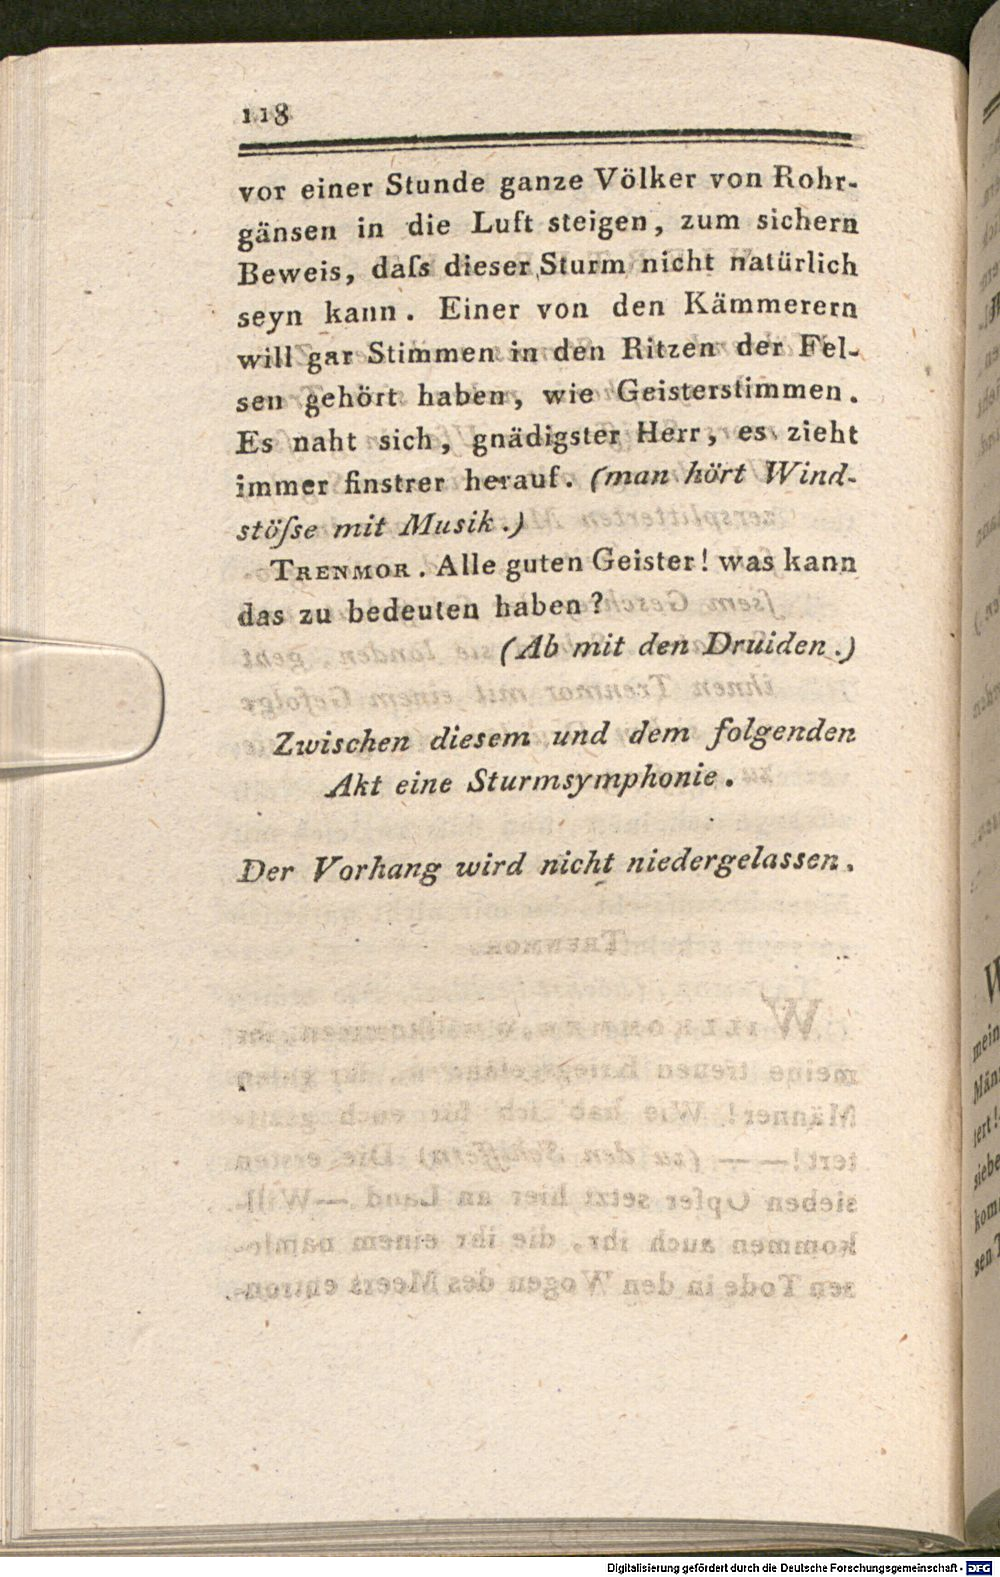 118
vor einer Stunde ganze Völker von Rohr-
gänsen in die Luft steigen, zum sichern
Beweis, daſs dieser Sturm nicht natürlich
seyn kann. Einer von den Kämmerern
will gar Stimmen in den Ritzen der Fel-
sen gehört haben, wie Geisterstimmen.
Es naht sich, gnädigster Herr, es zieht
immer finstrer herauf. (man hört Wind-
stöſse mit Musik.)
TRENMOR. Alle guten Geister! was kann
das zu bedeuten haben?
(Ab mit den Druiden.)
Zwischen diesem und dem folgenden
Akt eine Sturmsymphonie.
Der Vorhang wird nicht niedergelassen.
Digitalisierung gefördert durch die Deutsche Forschungsgemeinschaft - DFG